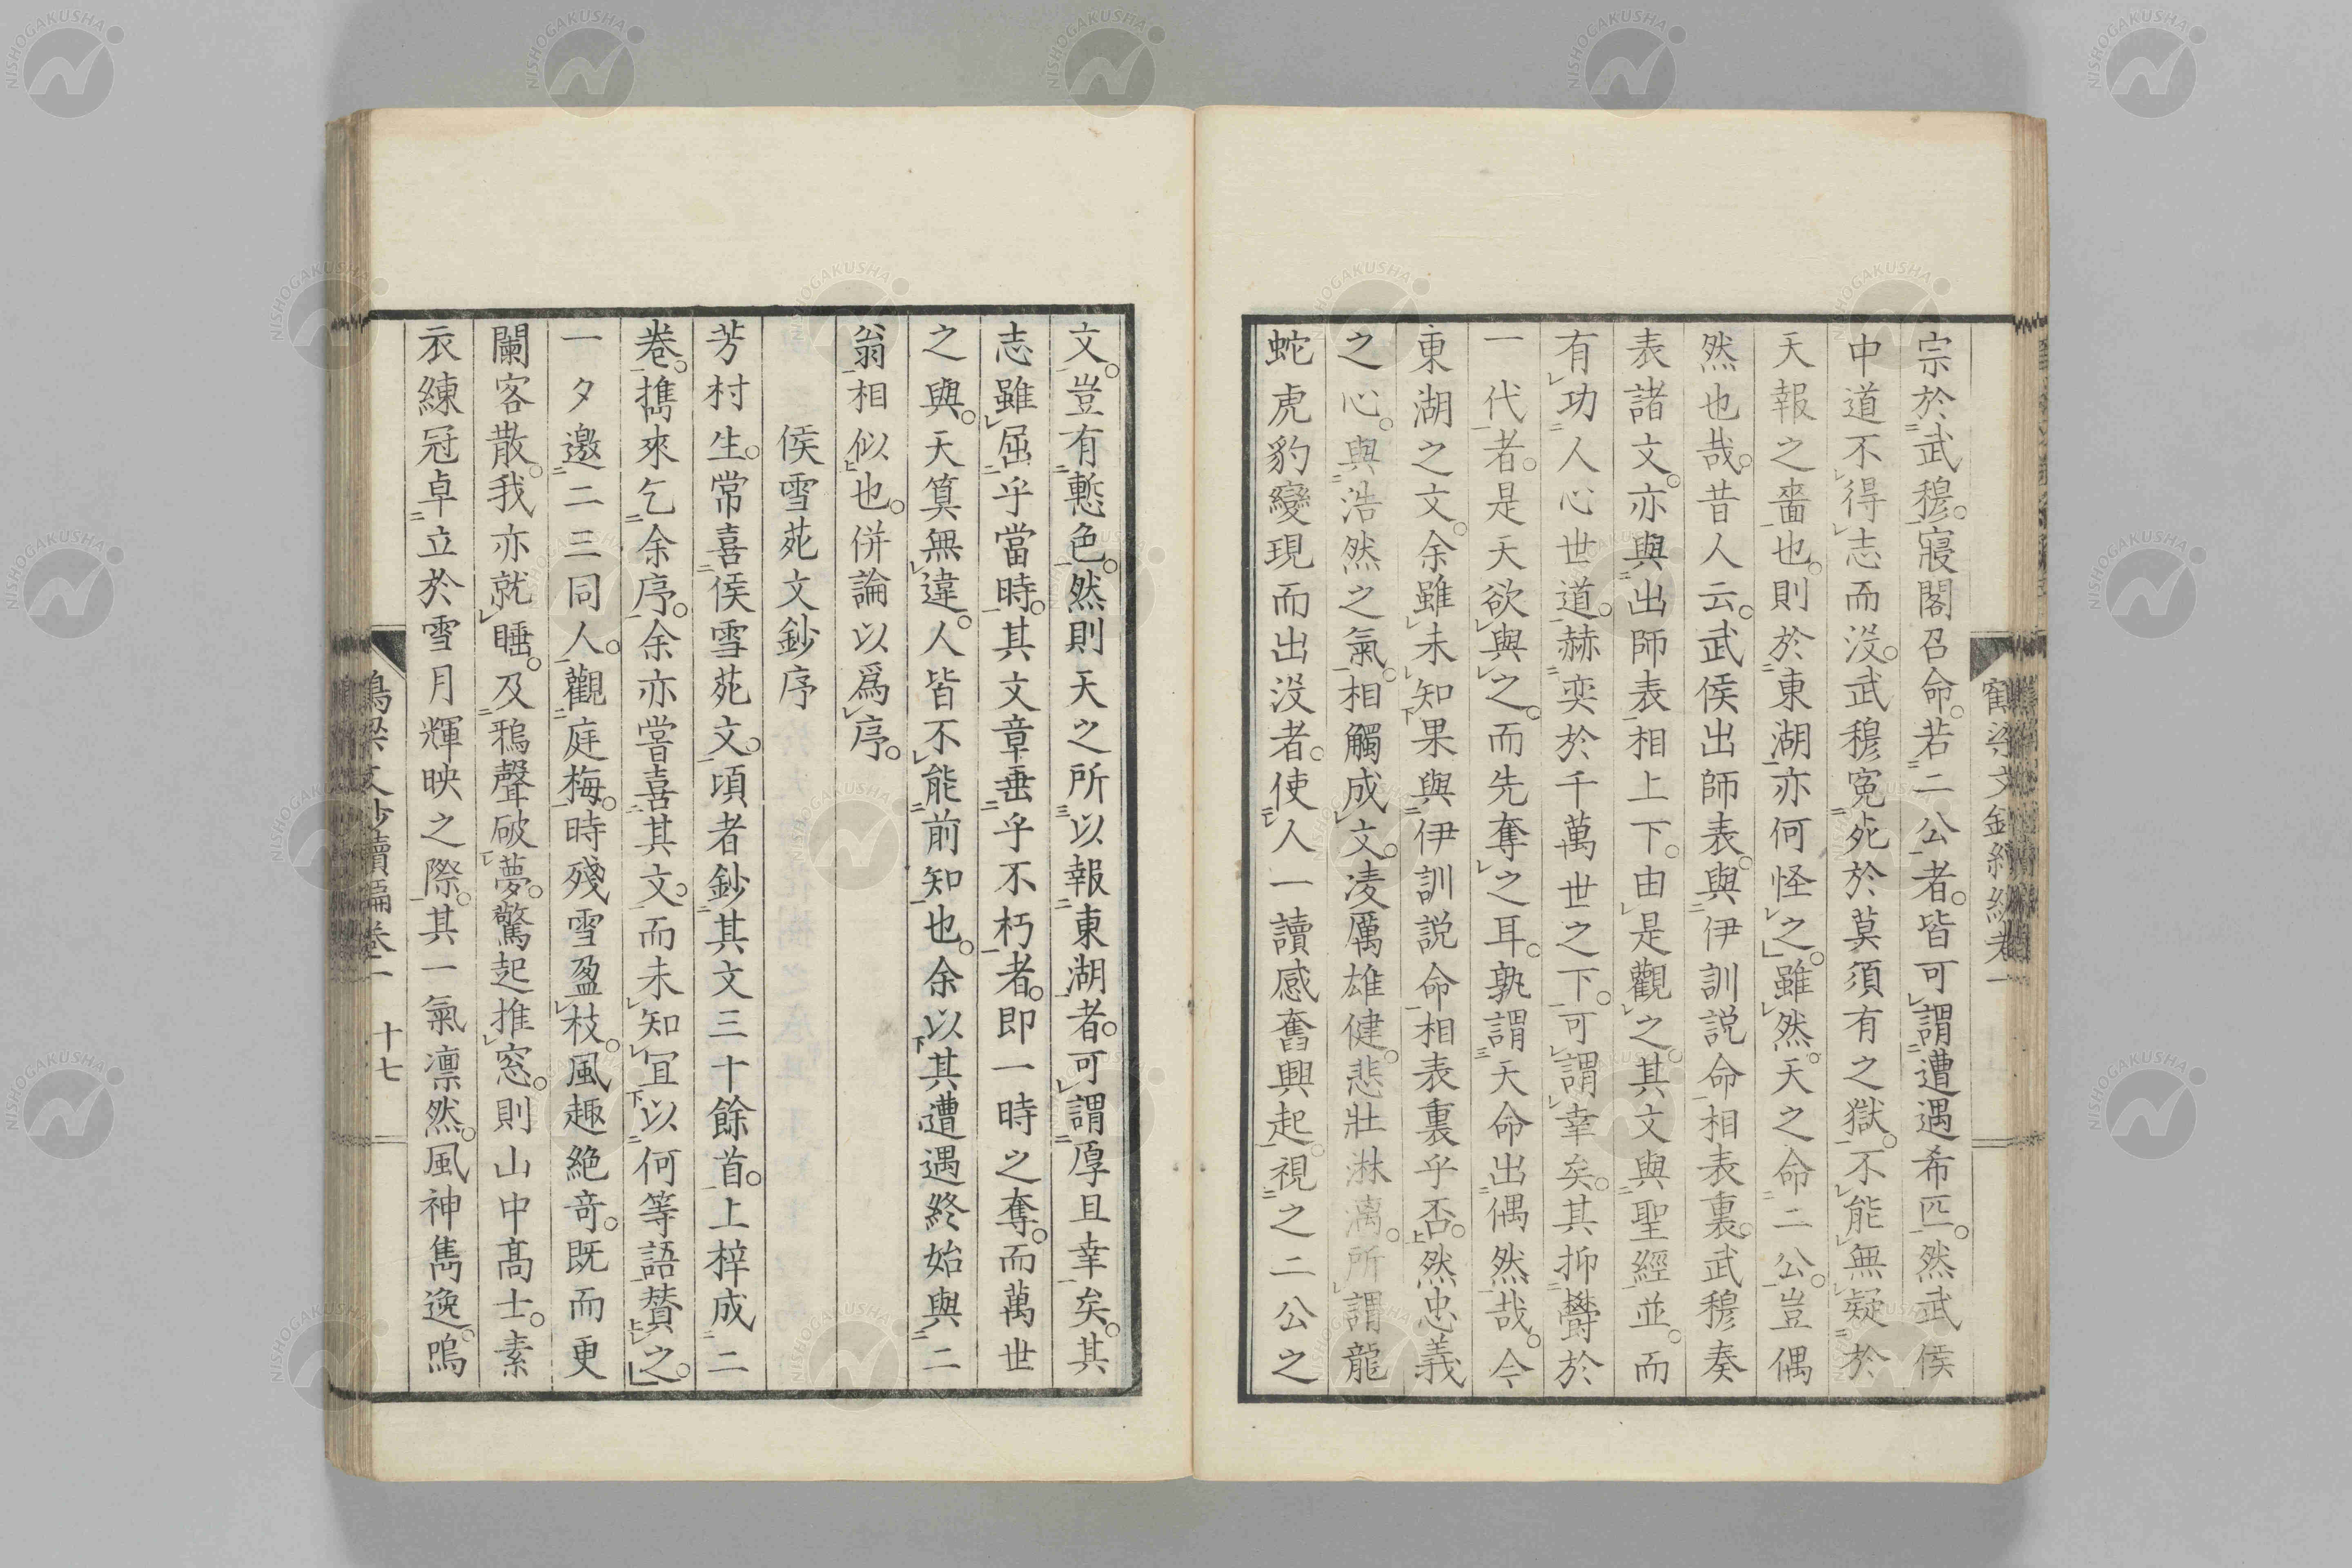 宗於武穆。寢閣召命。若二公者。皆可謂遭遇希匹。然武侯
中道不得志而沒。武穆冤死於莫須有之獄。不能無疑於
天報之嗇也。則於東湖亦何怪之。雖然。天之命二公。豈偶
然也哉。昔人云。武侯出師表。與伊訓說命相表裏。武穆奏
表諸文。亦與出師表相上下。由是觀之。其文與聖經並。而
有功人心世道。赫奕於千萬世之下。可謂幸矣。其抑欝於
一代者。是天欲與之。而先奪之耳。孰謂天命出偶然哉。今
東湖之文。余雖未知果與伊訓說命相表裏乎否。然忠義
之心。與浩然之氣。相觸成文。凌厲雄健。悲壯淋漓。所謂龍
蛇虎豹變現而出沒者。使人一讀感奮興起。視之二公之
文。豈有慙色。然則天之所以報東湖者。可謂厚且幸矣。其
志雖屈乎當時。其文章垂乎不朽者。即一時之奪。而萬世
之與。天算無違。人皆不能前知也。余以其遭遇終始與二
翁相似也。併論以爲序。
侯雪苑文鈔序
芳村生。常喜侯雪苑文。頃者鈔其文三十餘首。上梓成二
卷。携來乞余序。余亦嘗喜其文。而未知冝以何等語賛之。
一夕邀二三同人。觀庭梅。時殘雪盈枝。風趣絶奇。既而更
闌客散。我亦就睡。及鴉聲破夢。驚起推窓。則山中高士。素
衣練冠卓立於雪月輝映之際。其一氣凛然。風神雋逸。嗚
十七
NISHOGAKUSHA